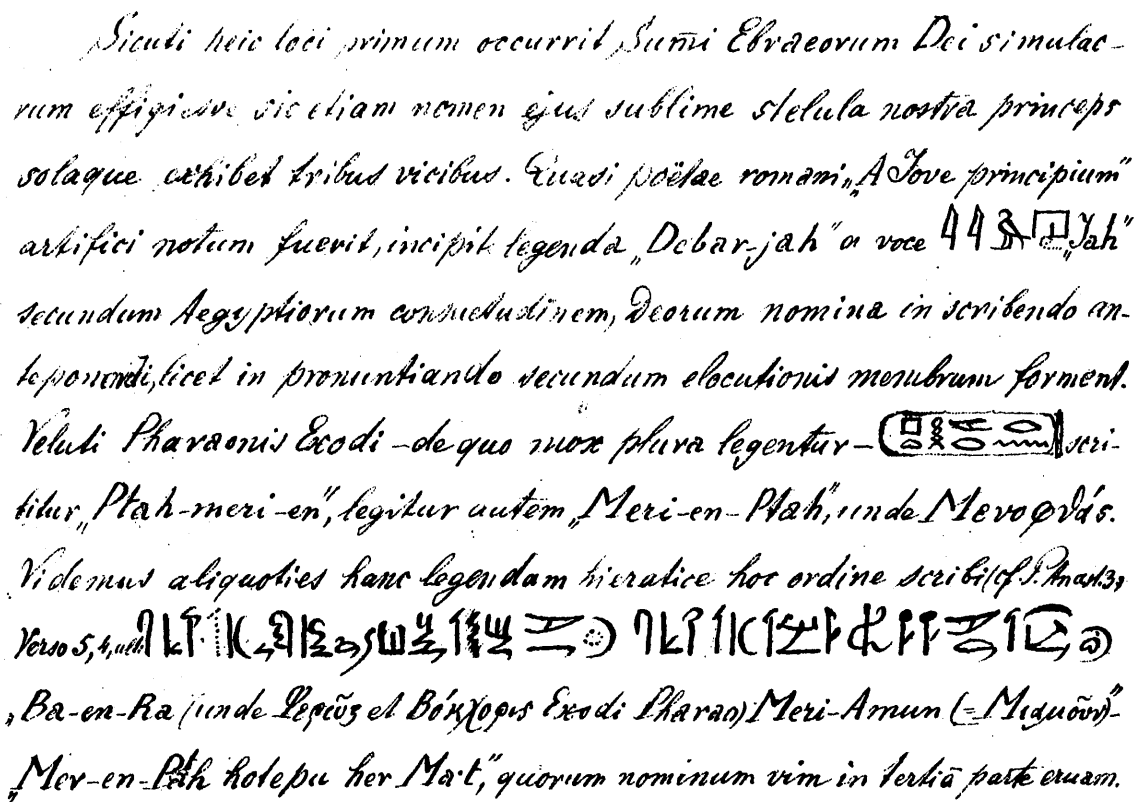 Sicuti heic loci primum occurrit Sum̄i Ebraeorum Dei simulac-
rum effigiesve sic etiam nomen ejus sublime stelula nostra princeps
solaque exhibet tribus vicibus. Quasi poëtae romani „A Jove principium"
artifici notum fuerit, incipit legenda „Debar-jah" a voce „Jah"
secundum Aegyptiorum consuetudinem, Deorum nomina in scribendo an-
teponendi, licet in pronuntiando secundum elocutionis membrum forment.
Veluti Pharaonis Exodi – de quo mox plura legentur – scri-
bitur „Ptah-meri-en", legitur autem „Meri-en-Ptah", unde Μενοφθάς.
Videmus aliquoties hanc legendam hieratice hoc ordine scribi (cf P. Anast. 3,
Verso 5, 4,
„Ba-en-Ra (unde et Βόκχορις Exodi Pharao) Meri-Amun (=
„Mer-en-Ptah hotepu her Ma·t", quorum nominum vim in tertiā parte eruam.